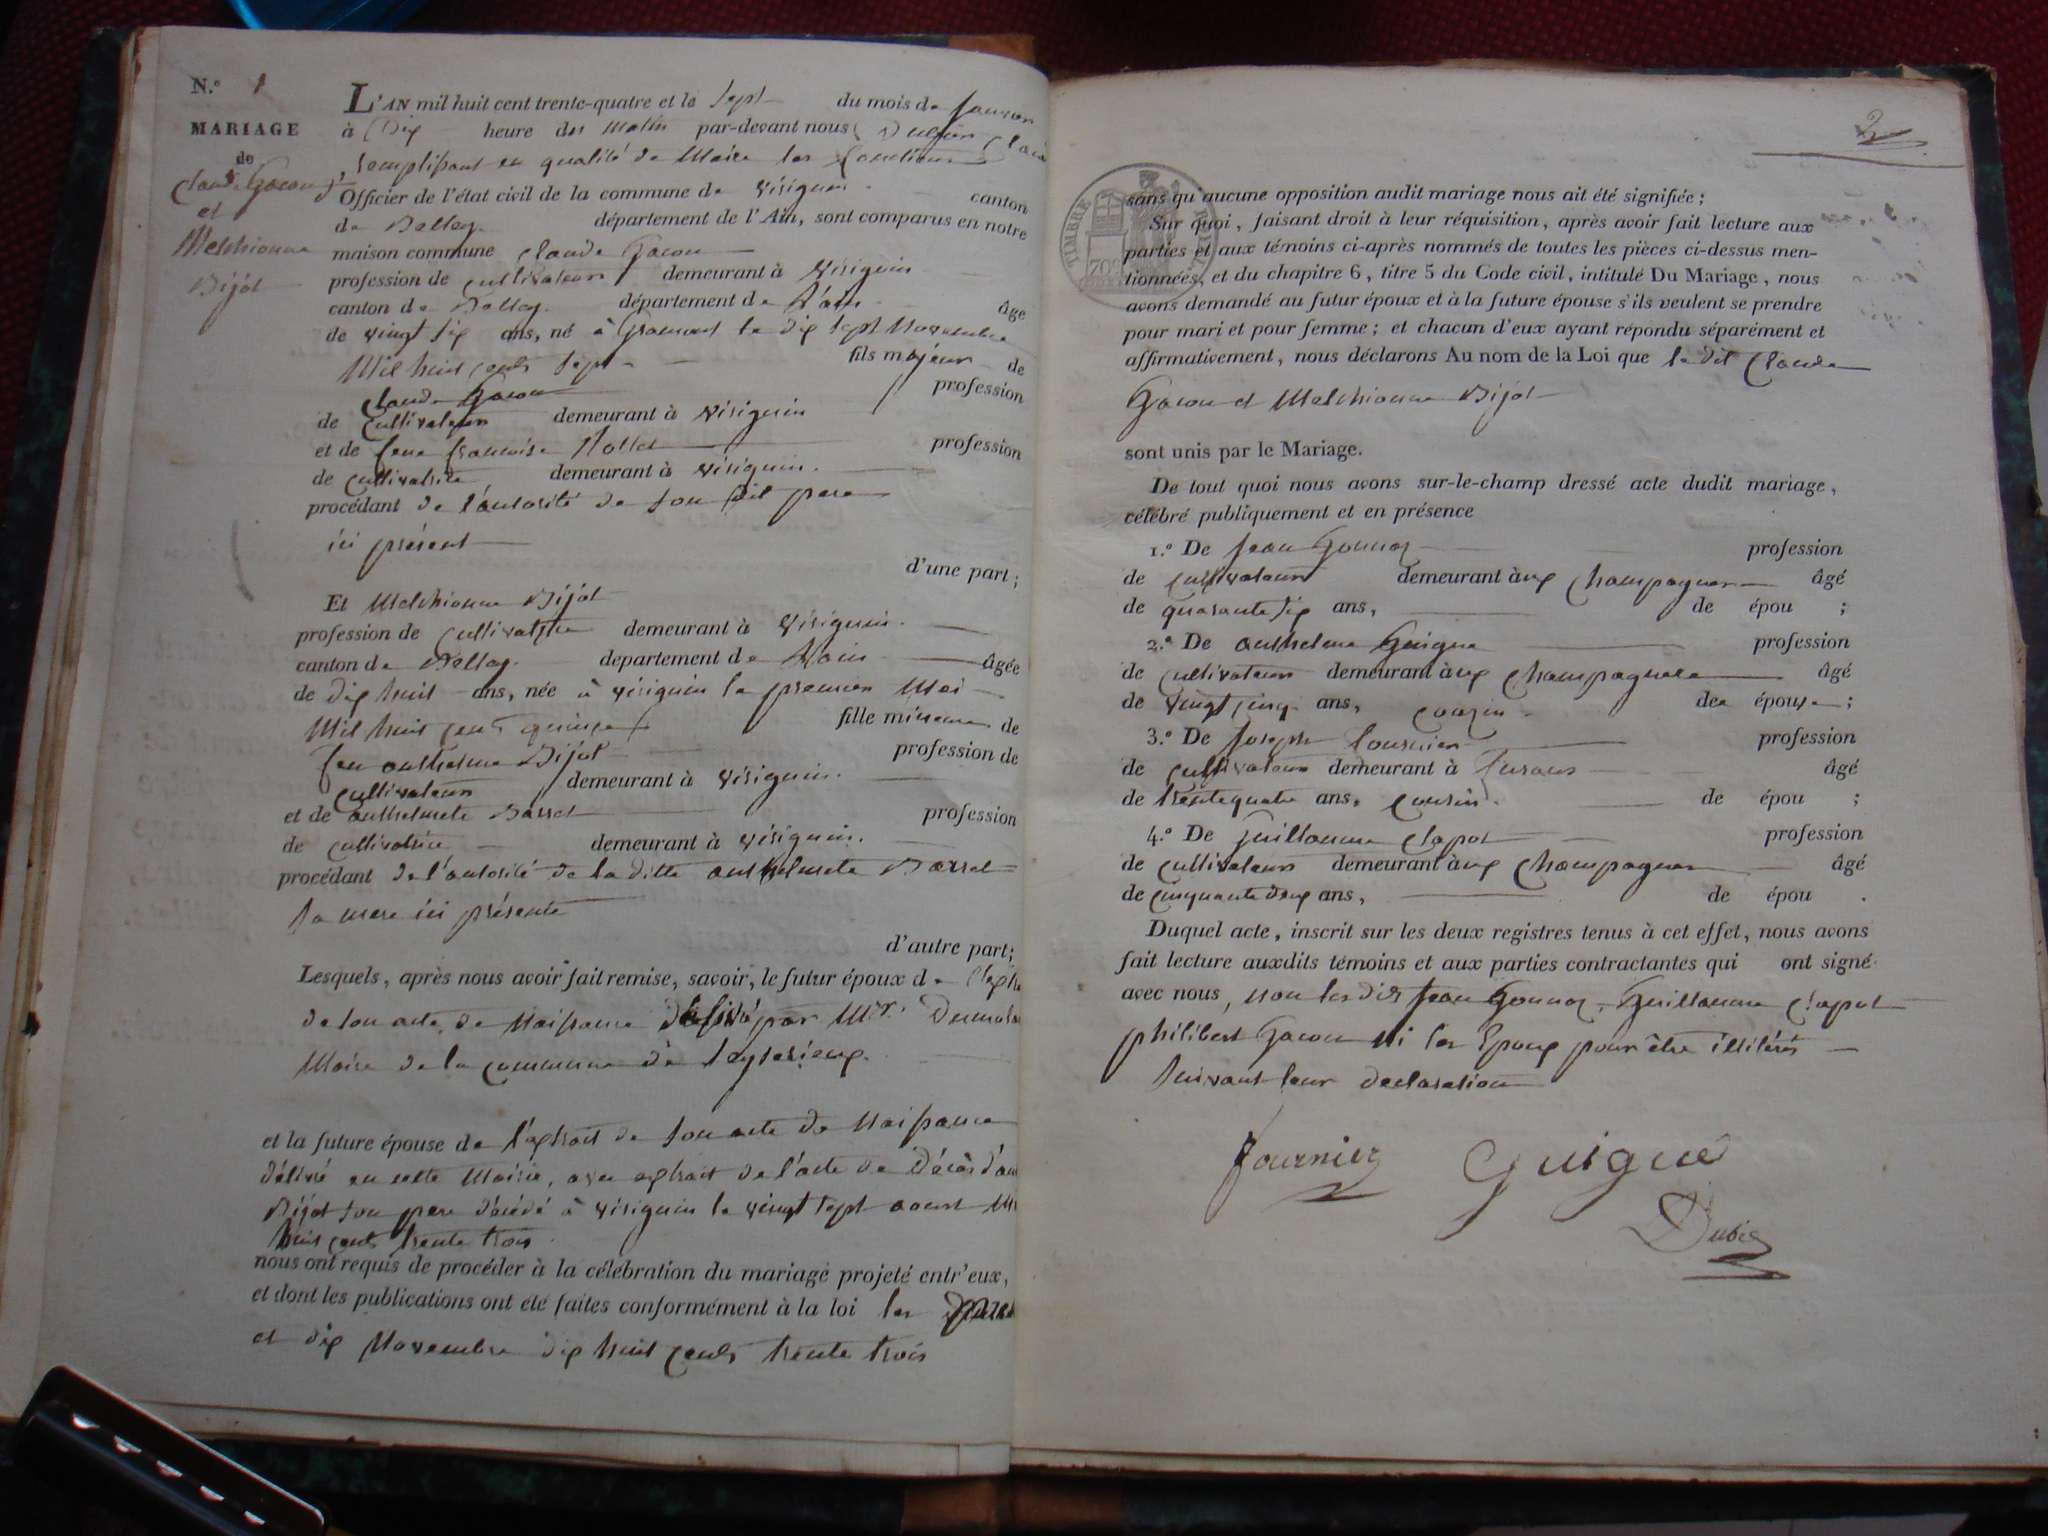 N.° 1
MARIAGE
de
Claude Gacon
et
Melchionne
Bijot
L'AN mil huit cent trente-quatre et le sept du mois de janvier
à Dix heure du matin par-devant nous
remplissant en qualité de Maire les fonctions
Officier de l'état civil de la commune de virignin canton
de Belley département de l'Ain, sont comparus en notre
maison commune Claude Gacon
profession de cultivateur demeurant à virignin
canton de Belley département de l'ain âgé
de vingt six ans, né à le dix sept Novembre
Mil huit cent sept fils majeur de
Claude Gacon profession
de cultivateur demeurant à virignin
et de feue françoise profession
de cultivatrice demeurant à virignin
procédant de l'autorité de son dit pere
ici présent
d'une part;
Et Melchionne Bijot
profession de cultivatrice demeurant à virignin
canton de Belley departement de l'ain âgée
de dix huit ans, née à virignin le premier Mai
Mil huit cent quinze fille mineure de
feu anthelme Bijot profession de
cultivateur demeurant à virignin
et de anthelmete Barret profession
de cultivatrice demeurant à virignin
procédant de l'autorité de la ditte anthelmete Barret
sa mere ici présente
d'autre part;
Lesquels, après nous avoir fait remise, savoir, le futur époux de
de son acte de Naissance délivré par Mr.
Maire de la commune de
et la future épouse de l'extrait de son acte de Naissance
délivré en cette Mairie, avec extrait de l'acte de Décès
Bijot son pere décédé à virignin le vingt sept aoust
huit cent trente trois
nous ont requis de procéder à la célébration du mariage projeté entr'eux,
et dont les publications ont été faites conformément à la loi les
et dix Novembre dix huit cent trente trois
2
TIMBRE ROYAL
70
sans qu'aucune opposition audit mariage nous ait été signifiée;
Sur quoi, faisant droit à leur réquisition, après avoir fait lecture aux
parties et aux témoins ci-après nommés de toutes les pièces ci-dessus men-
tionnées, et du chapitre 6, titre 5 du Code civil, intitulé Du Mariage, nous
avons demandé au futur époux et à la future épouse s'ils veulent se prendre
pour mari et pour femme; et chacun d'eux ayant répondu séparément et
affirmativement, nous déclarons Au nom de la Loi que le dit Claude
Gacon et Melchionne Bijot
sont unis par le Mariage.
De tout quoi nous avons sur-le-champ dressé acte dudit mariage,
célébré publiquement et en présence
1.° De Jean Gonnaz profession
de cultivateur demeurant àux Champagnes âgé
de quarante six ans, de épou ;
2.° De anthelme Guigue profession
de cultivateur demeurant àux Champagnes âgé
de vingt cinq ans, couzin de épouse;
3.° De Joseph fournier profession
de cultivateur demeurant à furans âgé
de trentequatre ans, cousin de épou ;
4.° De Guillaume Clapot profession
de cultivateur demeurant àux Champagnes âgé
de cinquante deux ans, de épou .
Duquel acte, inscrit sur les deux registres tenus à cet effet, nous avons
fait lecture auxdits témoins et aux parties contractantes qui ont signé
avec nous, non les dits Jean Gonnaz, Guillaume Clapot
philibert Gacon ni les Epoux pour être illiterés
suivant leur declaration
fournier Guigue
Dubie